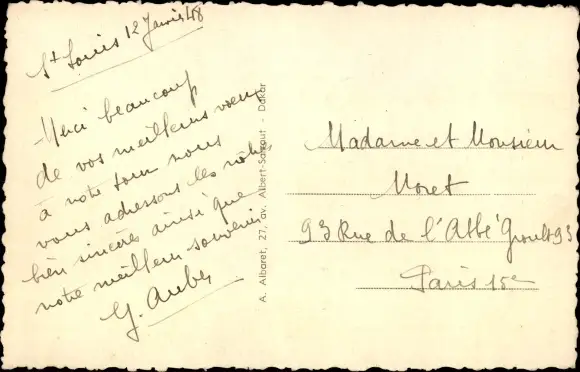 St Louis 12 Janvier 48
Merci beaucoup
de vos meilleurs vœux
à notre tour nous
vous adressons les nôtres
bien sincères ainsi que
notre meilleur souvenir
G. Auber
A. Albaret, 27, av. Albert-Sarraut - Dakar
Madame et Monsieur
Moret
93 Rue de l'Abbé Groult 93
Paris 15e